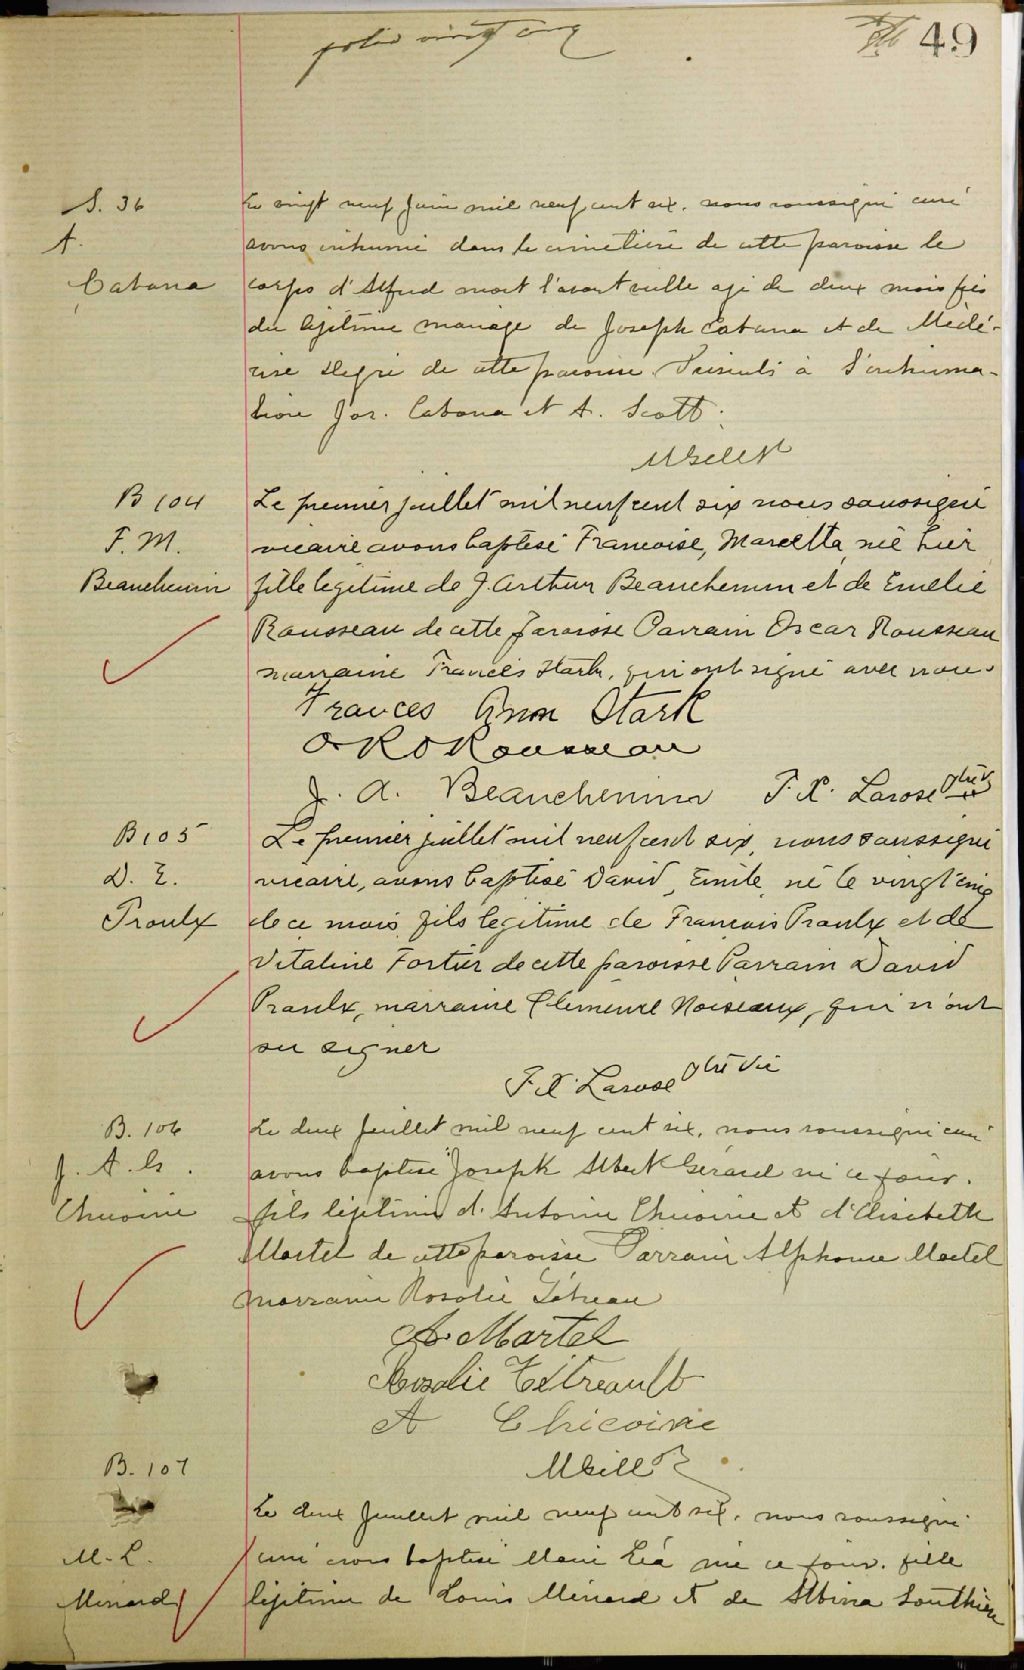 folio vingt cinq
49
S. 36
A.
Cabana
Le vingt neuf Juin mil neuf cent six, nous soussigné curé
avons inhumé dans le cimetière de cette paroisse le
corps d'Alfred mort l'avant veille agé de deux mois fils
du légitime mariage de Joseph Cabana et de Médé-
rise Degré de cette paroisse Présents à l'inhuma-
tion Jos. Cabana et A. Scott.
B 104
F. M.
Beauchemin
Le premier juillet mil neuf cent six nous soussigné
vicaire avons baptisé Francoise, Marcella, née hier
fille légitime de J. Arthur Beauchemin et de Emelie
Rousseau de cette paroisse Parrain Oscar Rousseau
marraine Francés Stark, qui ont signé avec nous.
Frances Ann Stark
O K O Rousseau
J. A. Beauchemin F. X. Larose ptre v
B 105
D. E.
Proulx
Le premier juillet mil neuf cent six, nous soussigné
vicaire, avons baptisé David, Emile, né le vingt cinq
de ce mois, fils légitime de Francois Proulx et de
Vitaline Fortier de cette paroisse Parrain David
Proulx, marraine Clémence Noiseaux, qui n'ont
su signer
F. X. Larose ptre Vic
B. 106
J. A. G.
Chicoine
Le deux Juillet mil neuf cent six, nous soussigné curé
avons baptisé Joseph Albert Gérard né ce jour.
fils légitime d'Antoine Chicoine et d'Elisabeth
Martel de cette paroisse Parrain Alphonse Martel
marraine Rosalie Tétreau
A. Martel
Rosalie Tétreault
A Chicoine
B. 107
M. L.
Ménard
Le deux Juillet mil neuf cent six, nous soussigné
curé avons baptisé Marie Léa née ce jour. fille
légitime de Louis Ménard et de Albina Southière